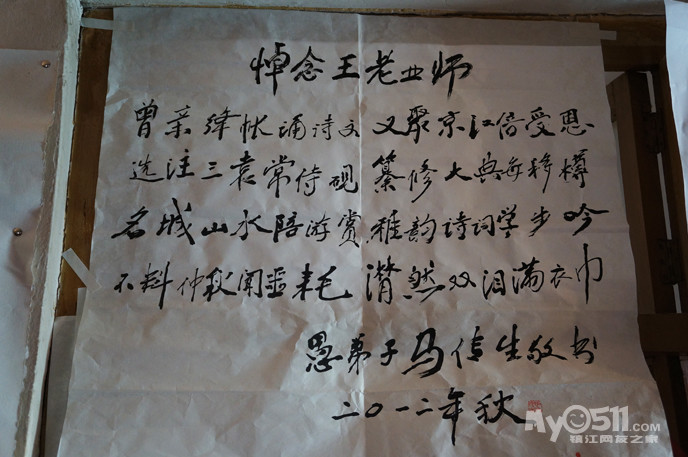 悼念王老业师
曾亲绛帐诵诗文 又聚京江倍受恩
选注三袁常侍砚 纂修大典每移樽
名城山水陪游赏 雅韵诗词学步吟
不料仲秋闻噩耗 潸然双泪满衣巾
愚弟子马信生敬书
二〇一二年秋
My0511.com
镇江网友之家